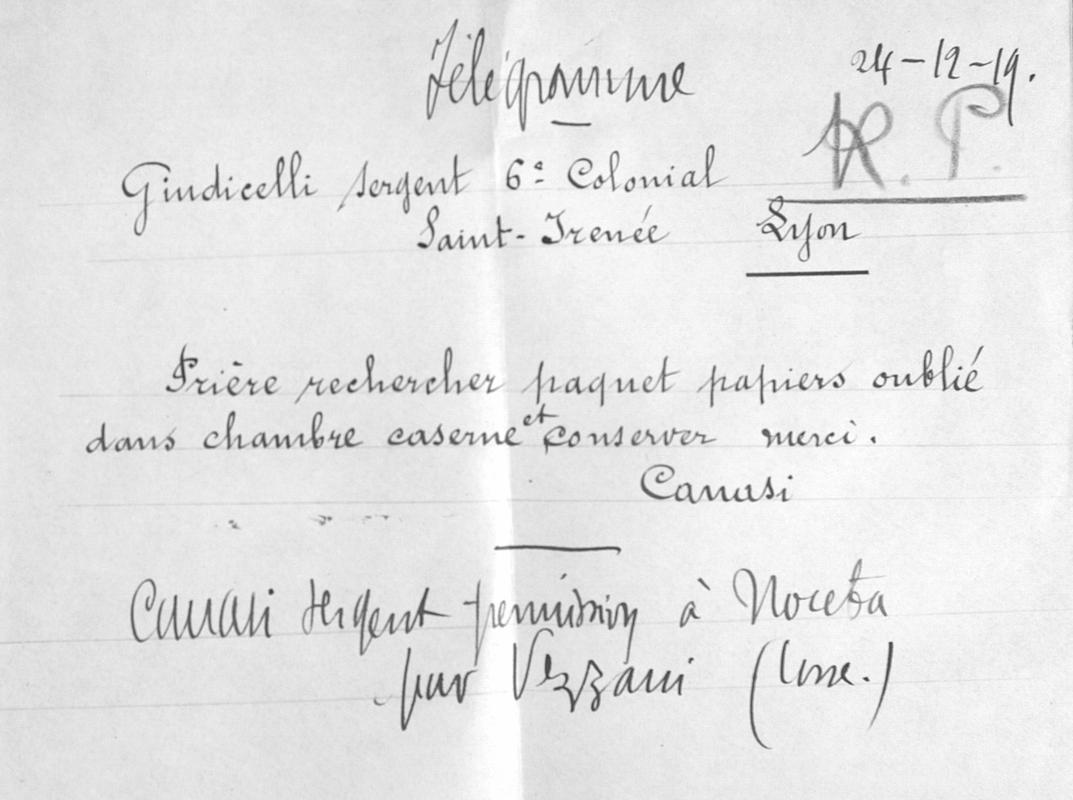 Télégramme
24-12-19.
R. P.
Giudicelli sergent 6e Colonial
Saint-Irenée Lyon
Prière rechercher paquet papiers oublié
dans chambre caserne et conserver merci.
Canasi
Canasi sergent permission à Noceta
par Vezzani (Corse.)